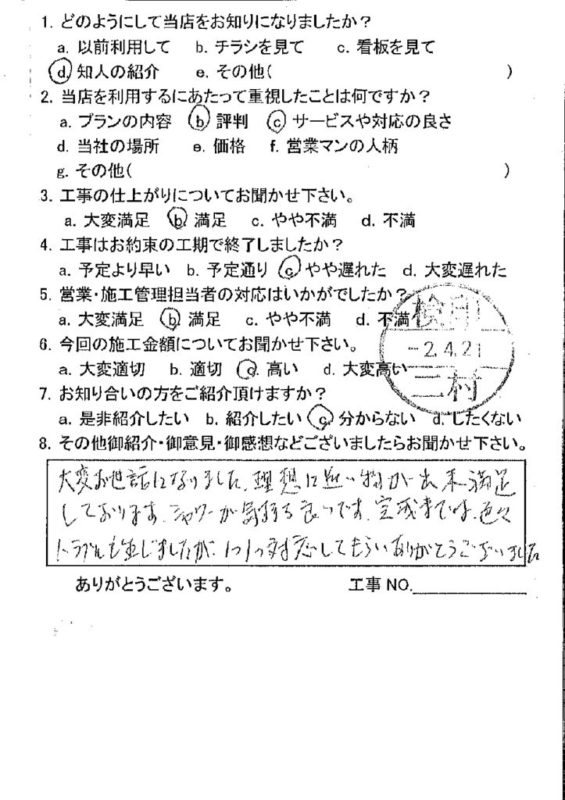 1. どのようにして当店をお知りになりましたか？
a. 以前利用して b. チラシを見て c. 看板を見て
d. 知人の紹介 e. その他( )
2. 当店を利用するにあたって重視したことは何ですか？
a. プランの内容 b. 評判 c. サービスや対応の良さ
d. 当社の場所 e. 価格 f. 営業マンの人柄
g. その他( )
3. 工事の仕上がりについてお聞かせ下さい。
a. 大変満足 b. 満足 c. やや不満 d. 不満
4. 工事はお約束の工期で終了しましたか？
a. 予定より早い b. 予定通り c. やや遅れた d. 大変遅れた
5. 営業・施工管理担当者の対応はいかがでしたか？
a. 大変満足 b. 満足 c. やや不満 d. 不満
検印
-2.4.21
三村
6. 今回の施工金額についてお聞かせ下さい。
a. 大変適切 b. 適切 c. 高い d. 大変高い
7. お知り合いの方をご紹介頂けますか？
a. 是非紹介したい b. 紹介したい c. 分からない d. したくない
8. その他御紹介・御意見・御感想などございましたらお聞かせ下さい。
大変お世話になりました。理想に近い物が出来満足
しております。シャワーが気持ち良いです。完成までは、色々
トラブルも生じましたが、1つ1つ対応してもらいありがとうございました
ありがとうございます。 工事 NO.